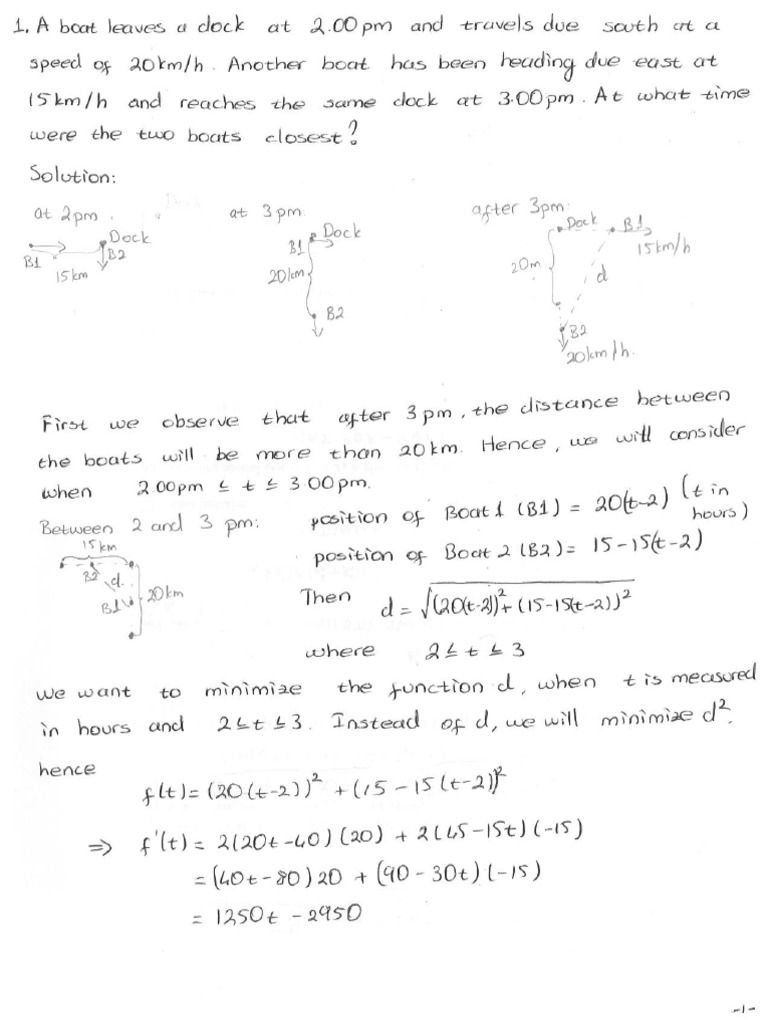 1. A boat leaves a dock at 2.00pm and travels due south at a
speed of 20km/h. Another boat has been heading due east at
15km/h and reaches the same dock at 3.00pm. At what time
were the two boats closest?
Solution:
at 2pm.
Dock
B1
B2
15km
at 3pm.
B1
Dock
20km
B2
after 3pm:
Dock
B1
15km/h
20m
d
B2
20km/h.
First we observe that after 3pm, the distance between
the boats will be more than 20km. Hence, we will consider
when 2.00pm ≤ t ≤ 3.00pm.
Between 2 and 3 pm: position of Boat 1 (B1) = 20(t-2) (t in hours)
15km
position of Boat 2 (B2) = 15-15(t-2)
B2
d
B1
20km
Then d = √((20(t-2))² + (15-15(t-2))²
where 2 ≤ t ≤ 3
we want to minimize the function d, when t is measured
in hours and 2 ≤ t ≤ 3. Instead of d, we will minimize d².
hence
f(t) = (20(t-2))² + (15-15(t-2))²
⇒ f'(t) = 2(20t-40)(20) + 2(45-15t)(-15)
= (40t-80)20 + (90-30t)(-15)
= 1250t - 2950
-1-